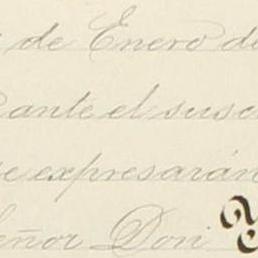 de Enero de
ante el susc
se expresarán
Señor Don